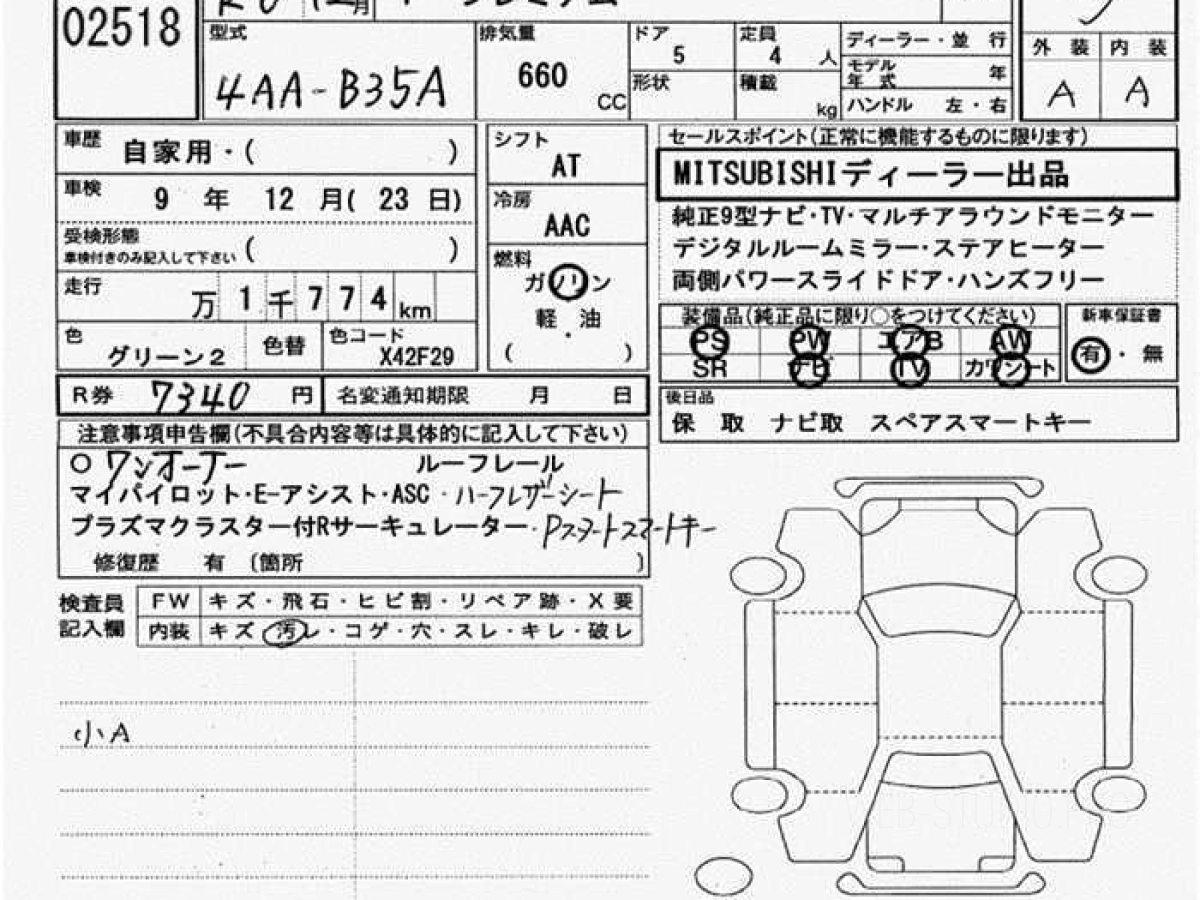 02518
型式
4AA-B35A
排気量
660
CC
ドア
5
定員
4 人
形状
積載
kg
ディーラー・並 行
モデル
年 式 年
ハンドル 左・右
外 装 内 装
A A
車歴
自家用・( )
車検
9 年 12 月( 23 日)
受検形態
車検付きのみ記入して下さい ( )
走行
万 1 千 7 7 4 km
色
グリーン2
色替
色コード
X42F29
シフト
AT
冷房
AAC
燃料
ガソリン
軽・油
( )
セールスポイント(正常に機能するものに限ります)
MITSUBISHIディーラー出品
純正9型ナビ・TV・マルチアラウンドモニター
デジタルルームミラー・ステアヒーター
両側パワースライドドア・ハンズフリー
装備品(純正品に限り○をつけてください)
PS PW エアB AW
SR ナビ TV カワシート
新車保証書
有・無
R券 7340 円
名変通知期限 月 日
後日品
保 取 ナビ取 スペアスマートキー
注意事項申告欄(不具合内容等は具体的に記入して下さい)
○ワンオーナー ルーフレール
マイパイロット・E-アシスト・ASC・ハーフレザーシート
プラズマクラスター付Rサーキュレーター・Pスタートスマートキー
修復歴 有 〔箇所 〕
検査員
記入欄
FW キズ・飛石・ヒビ割・リペア跡・X要
内装 キズ・汚レ・コゲ・穴・スレ・キレ・破レ
小A